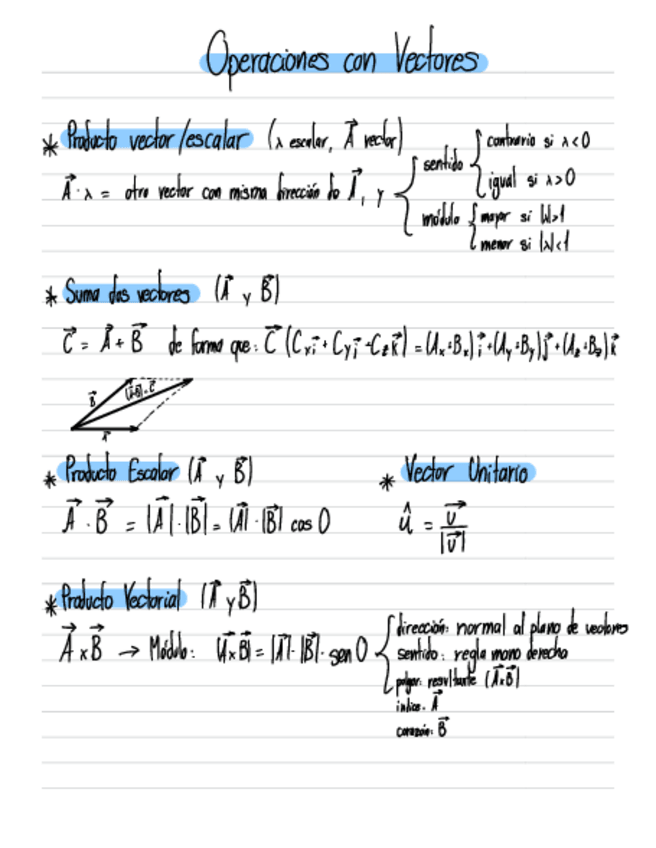 Operaciones con Vectores
* Producto vector/escalar (λ escalar, A⃗ vector)
A⃗ · λ = otro vector con misma dirección de A⃗, y { sentido { contrario si λ<0
igual si λ>0
módulo { mayor si |λ|>1
menor si |λ|<1
* Suma dos vectores (A⃗ y B⃗)
C⃗ = A⃗ + B⃗ de forma que: C⃗ (Cx i⃗ + Cy j⃗ + Cz k⃗) = (Ax+Bx) i⃗ + (Ay+By) j⃗ + (Az+Bz) k⃗
B⃗ (A⃗+B⃗)=C⃗
A⃗
* Producto Escalar (A⃗ y B⃗)
A⃗ · B⃗ = |A⃗| · |B⃗| = |A⃗| · |B⃗| cos O
* Vector Unitario
û = v⃗ / |v⃗|
* Producto Vectorial (A⃗ y B⃗)
A⃗ x B⃗ → Módulo: |A⃗xB⃗| = |A⃗| · |B⃗| · sen O { dirección: normal al plano de vectores
sentido: regla mano derecha
pulgar: resultante (A⃗xB⃗)
índice: A⃗
corazón: B⃗